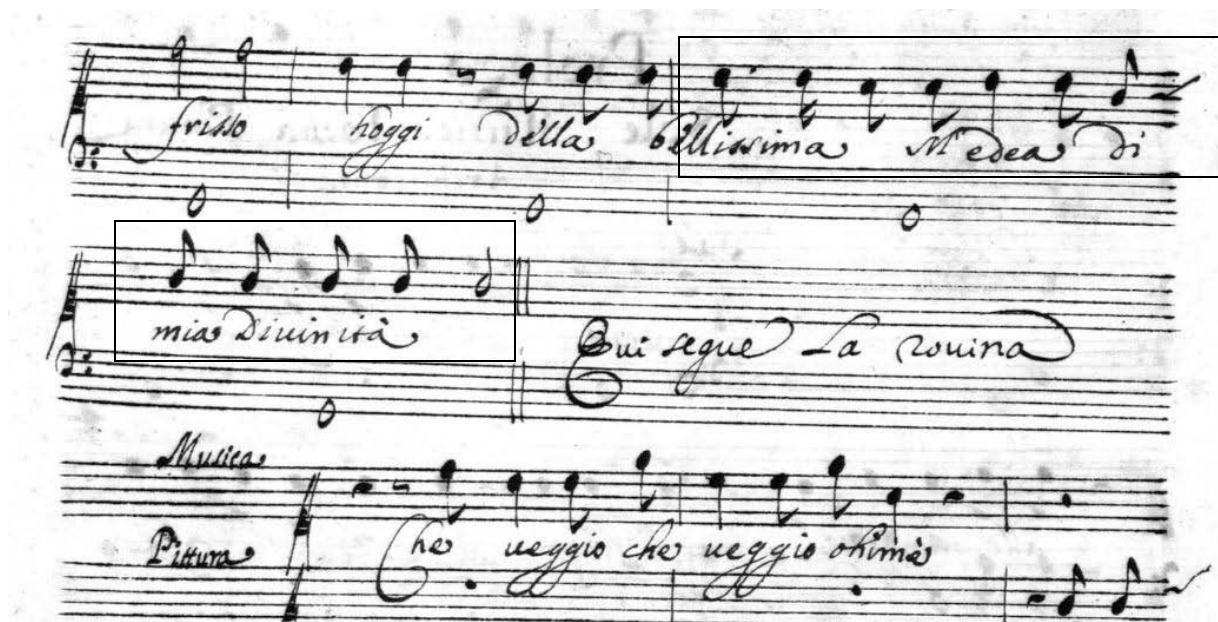 frisso hoggi della bellissima Medea di
mia Diuinità
Qui segue La rouina
Musica
Che ueggio che ueggio ohimè
Pittura